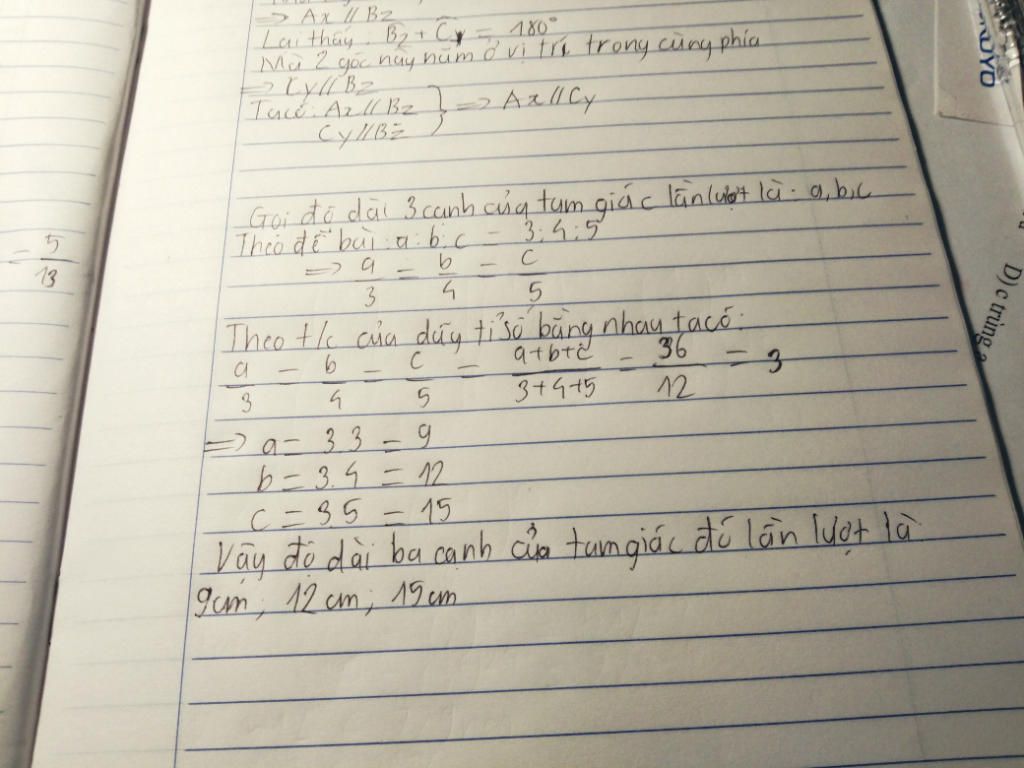 => Ax // Bz
Lại thấy: Bz + Cy = 180°
Mà 2 góc này nằm ở vị trí trong cùng phía
=> Cy // Bz
Ta có: Ax // Bz } => Ax // Cy
Cy // Bz
Gọi độ dài 3 cạnh của tam giác lần lượt là: a,b,c
Theo đề bài: a:b:c = 3:4:5
=> a/3 = b/4 = c/5
Theo t/c của dãy tỉ số bằng nhau ta có:
a/3 = b/4 = c/5 = a+b+c/3+4+5 = 36/12 = 3
=> a = 3.3 = 9
b = 3.4 = 12
c = 3.5 = 15
Vậy độ dài ba cạnh của tam giác đó lần lượt là
9cm; 12cm; 15cm
= 5/13